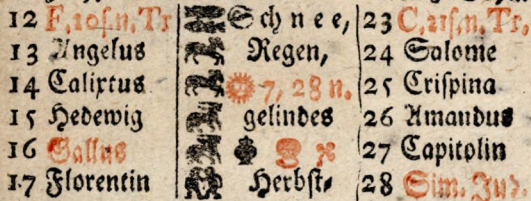 12 F. 20 s. n. Tr Schnee, 23 C. 21 s. n. Tr.
13 Angelus Regen, 24 Salome
14 Calixtus 7, 28 n. 25 Crispina
15 Hedewig gelindes 26 Amandus
16 Gallus 27 Capitolin
17 Florentin Herbst- 28 Sim. Jud.